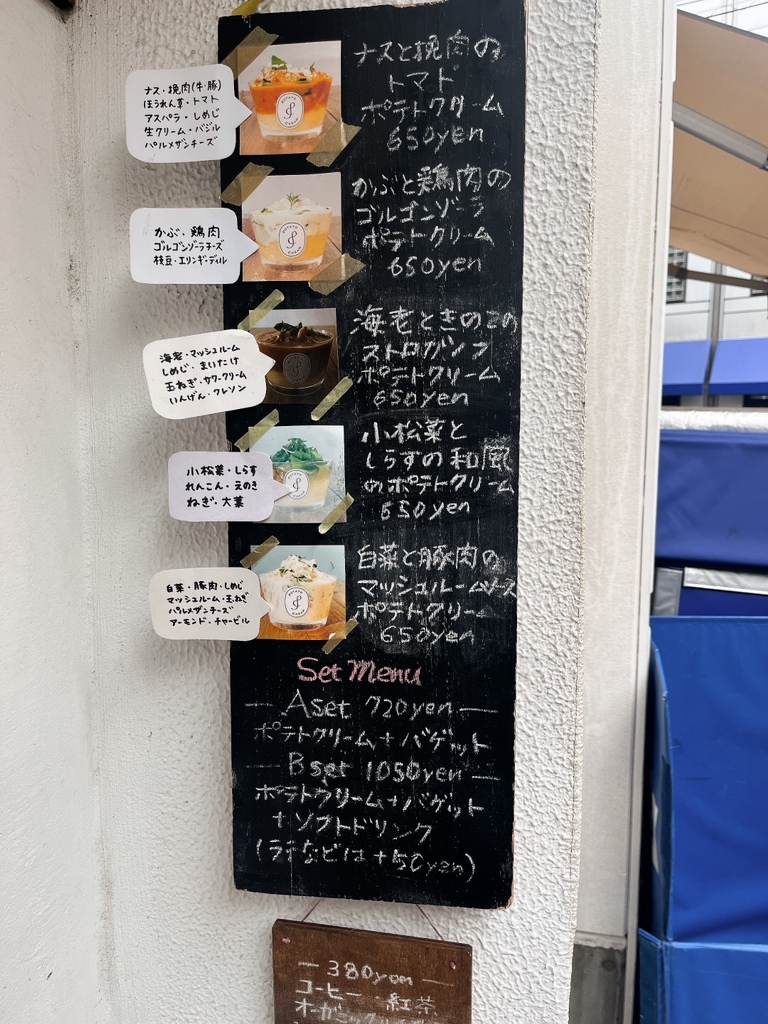 ナス・挽肉(牛・豚)
ほうれん草・トマト
アスパラ・しめじ
生クリーム・バジル
パルメザンチーズ
ナスと挽肉の
トマト
ポテトクリーム
650yen
かぶ・鶏肉
ゴルゴンゾーラチーズ
枝豆・エリンギ・ディル
かぶと鶏肉の
ゴルゴンゾーラ
ポテトクリーム
650yen
海老・マッシュルーム
しめじ・まいたけ
玉ねぎ・サワークリーム
いんげん・クレソン
海老ときのこの
ストロガノフ
ポテトクリーム
650yen
小松菜・しらす
れんこん・えのき
ねぎ・大葉
小松菜と
しらすの和風
のポテトクリーム
650yen
白菜・豚肉・しめじ
マッシュルーム・玉ねぎ
パルメザンチーズ
アーモンド・チャービル
白菜と豚肉の
マッシュルームソース
ポテトクリーム
650yen
Set Menu
Aset 720yen
ポテトクリーム+バゲット
Bset 1050yen
ポテトクリーム+バゲット
+ソフトドリンク
(ラテなどは+50yen)
380yen
コーヒー 紅茶